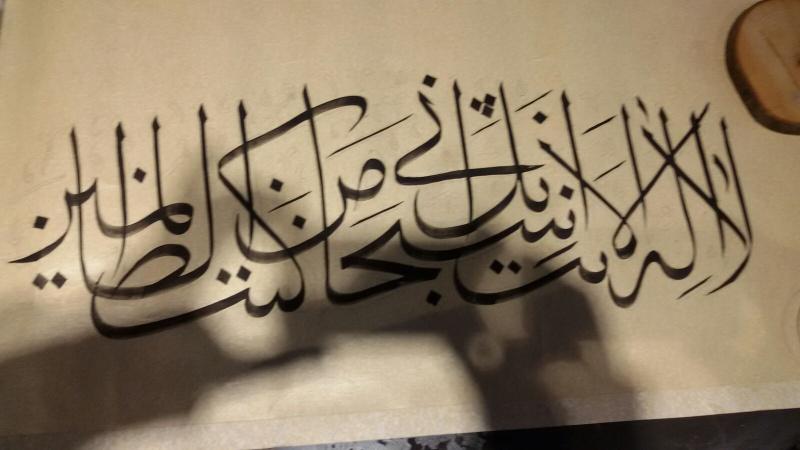 لا إله إلا أنت سبحانك إني كنت من الظالمين